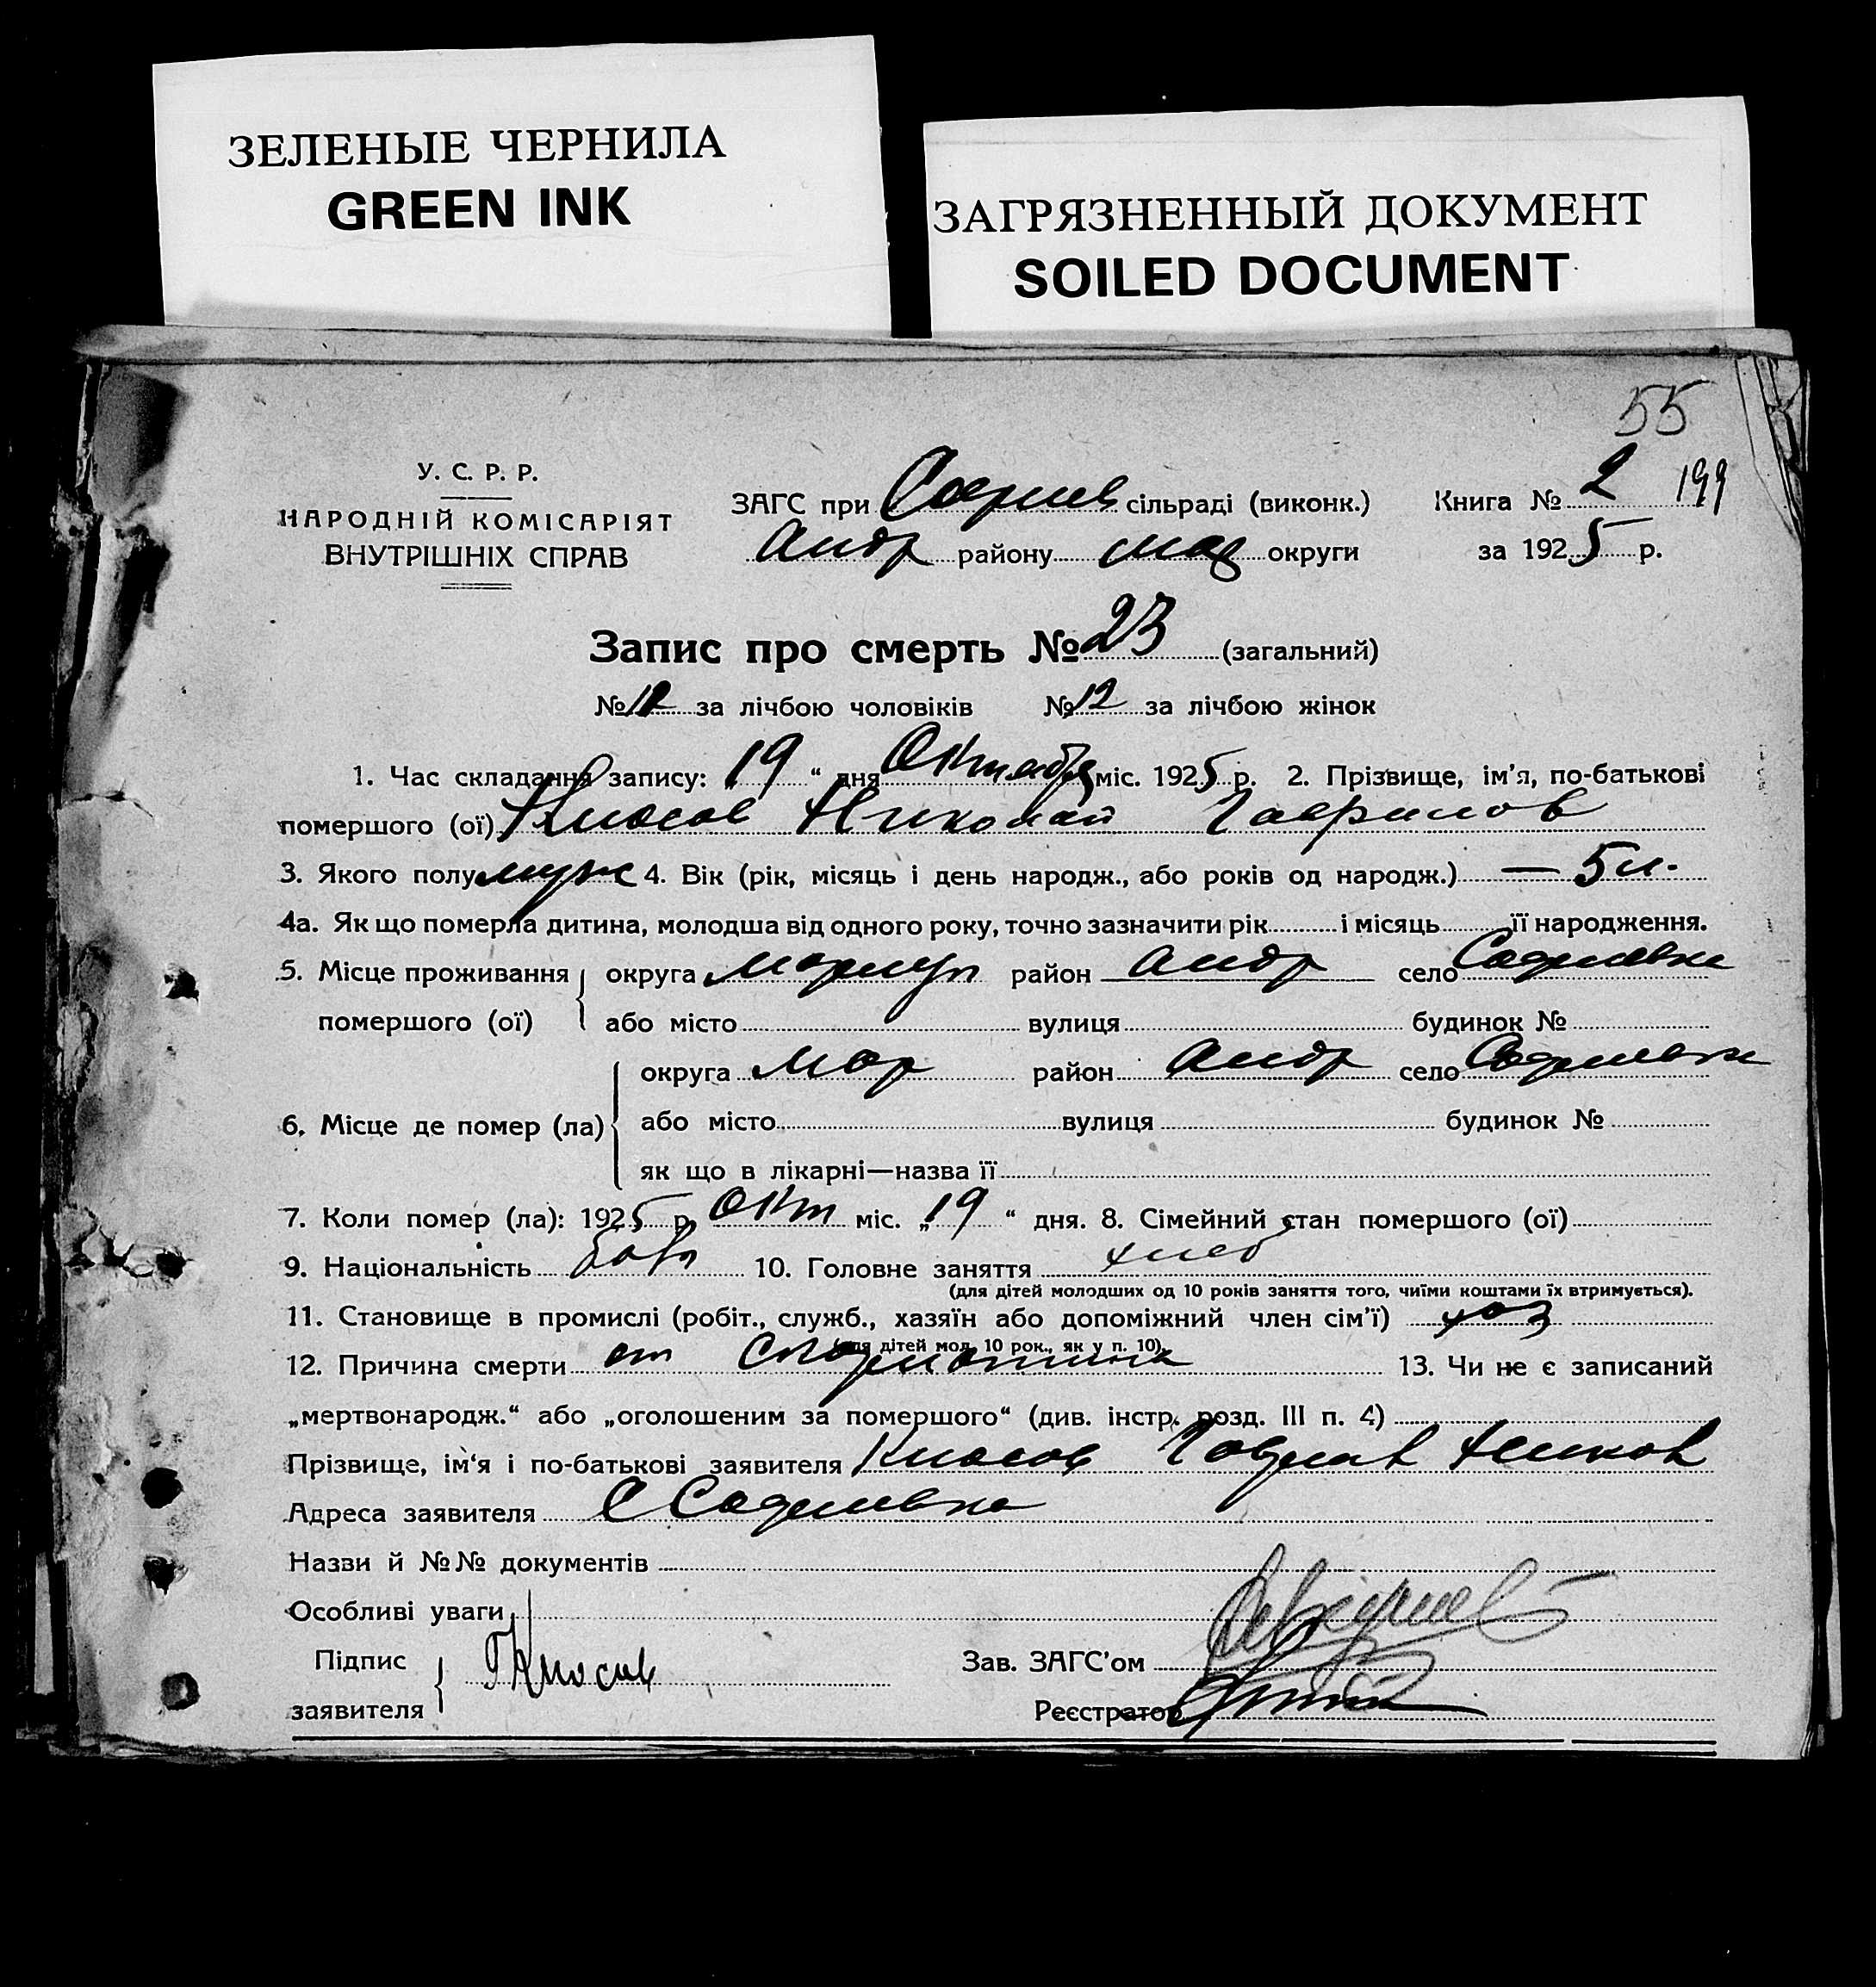 ЗЕЛЕНЫЕ ЧЕРНИЛА
GREEN INK
ЗАГРЯЗНЕННЫЙ ДОКУМЕНТ
SOILED DOCUMENT
55
У. С. Р. Р.
НАРОДНІЙ КОМІСАРІЯТ
ВНУТРІШНІХ СПРАВ
ЗАГС при сільраді (виконк.)
Андр району округи
Книга № 2 199
за 1925 р.
Запис про смерть № 23 (загальний)
№ 12 за лічбою чоловіків № 12 за лічбою жінок
1. Час складання запису: 19 “ дня Октября міс. 1925 р. 2. Прізвище, ім’я, по-батькові
помершого (ої) Киосов Николай Гаврилов
3. Якого полу муж 4. Вік (рік, місяць і день народж., або років од народж.) — 5 л.
4а. Як що померла дитина, молодша від одного року, точно зазначити рік і місяць її народження.
5. Місце проживання помершого (ої) округа Мариуп район Андр село
або місто вулиця будинок №
6. Місце де помер (ла) округа Мар район Андр село
або місто вулиця будинок №
як що в лікарні—назва її
7. Коли помер (ла): 1925 р. Окт міс. „19 “ дня. 8. Сімейний стан помершого (ої)
9. Національність болг 10. Головне заняття хлеб
(для дітей молодших од 10 років заняття того, чиїми коштами їх втримується).
11. Становище в промислі (робіт., служб., хазяїн або допоміжний член сім’ї) хоз
(для дітей мол. 10 рок., як у п. 10).
12. Причина смерти от скарлатина 13. Чи не є записаний
„мертвонародж.“ або „оголошеним за помершого“ (див. інстр. розд. III п. 4)
Прізвище, ім‘я і по-батькові заявителя Киосов Гаврил Ников
Адреса заявителя С
Назви й №№ документів
Особливі уваги
Підпис заявителя ГКиосов
Зав. ЗАГС’ом
Реєстратор